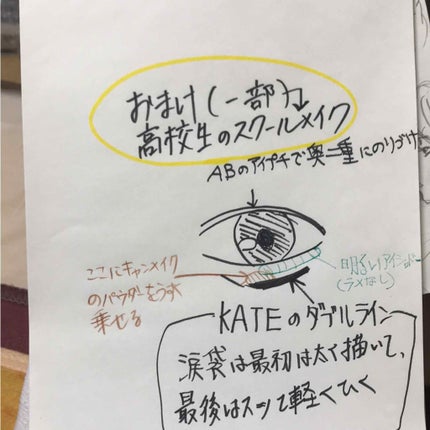 おまけ(一部)
高校生のスクールメイク
ABのアイプチで奥二重にのりづけ
ここにキャンメイク
のパウダーをうすく
乗せる
明るいアイシャドー
(ラメなし)
KATEのダブルライン
涙袋は最初は太く描いて、
最後はスッて軽くひく